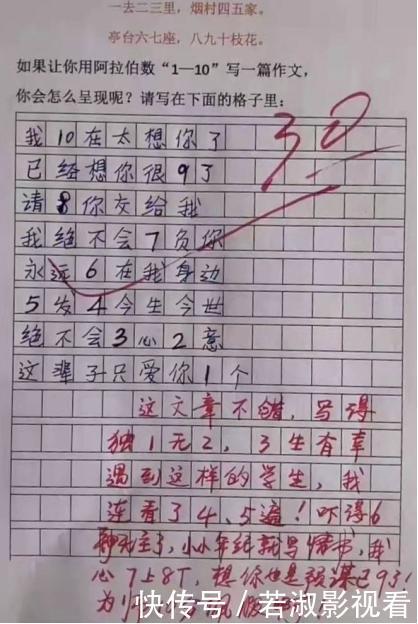 一去二三里，烟村四五家。
亭台六七座，八九十枝花。
如果让你用阿拉伯数“1—10”写一篇作文，
你会怎么呈现呢？请写在下面的格子里：
30
我10在太想你了
已经想你很9了
请8你交给我
我绝不会7负你
永远6在我身边
5发4今生今世
绝不会3心2意
这辈子只爱你1个
这文章不错，写得
独1无2，3生有幸
遇到这样的学生，我
连看了4、5遍！吓得6
神无主了，小小年纪就写情书，我
心7上8下，想你也是预谋已9了！
为师
快传号／若淑影视看